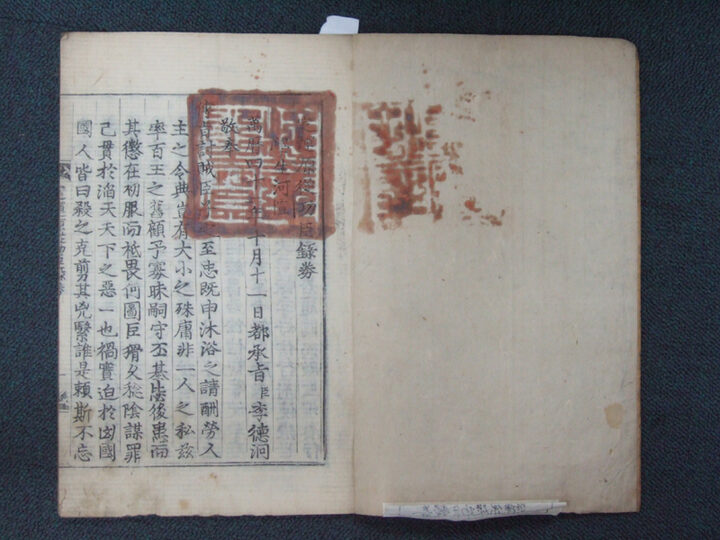 原從功臣錄券
生河
萬曆四十一年十月十一日都承旨臣李德泂
敬奉
傳旨討賊臣子之至忠既申沐浴之請酬勞人
主之令典豈有大小之殊庸非一人之私茲
率百王之舊顧予寡昧嗣守丕基毖後患而
其懲在初服而祗畏何圖臣久稔陰謀罪
己貫於滔天天下之惡一也禍實迫於凶國
國人皆曰殺之克剪其兇繄誰是賴斯不忘